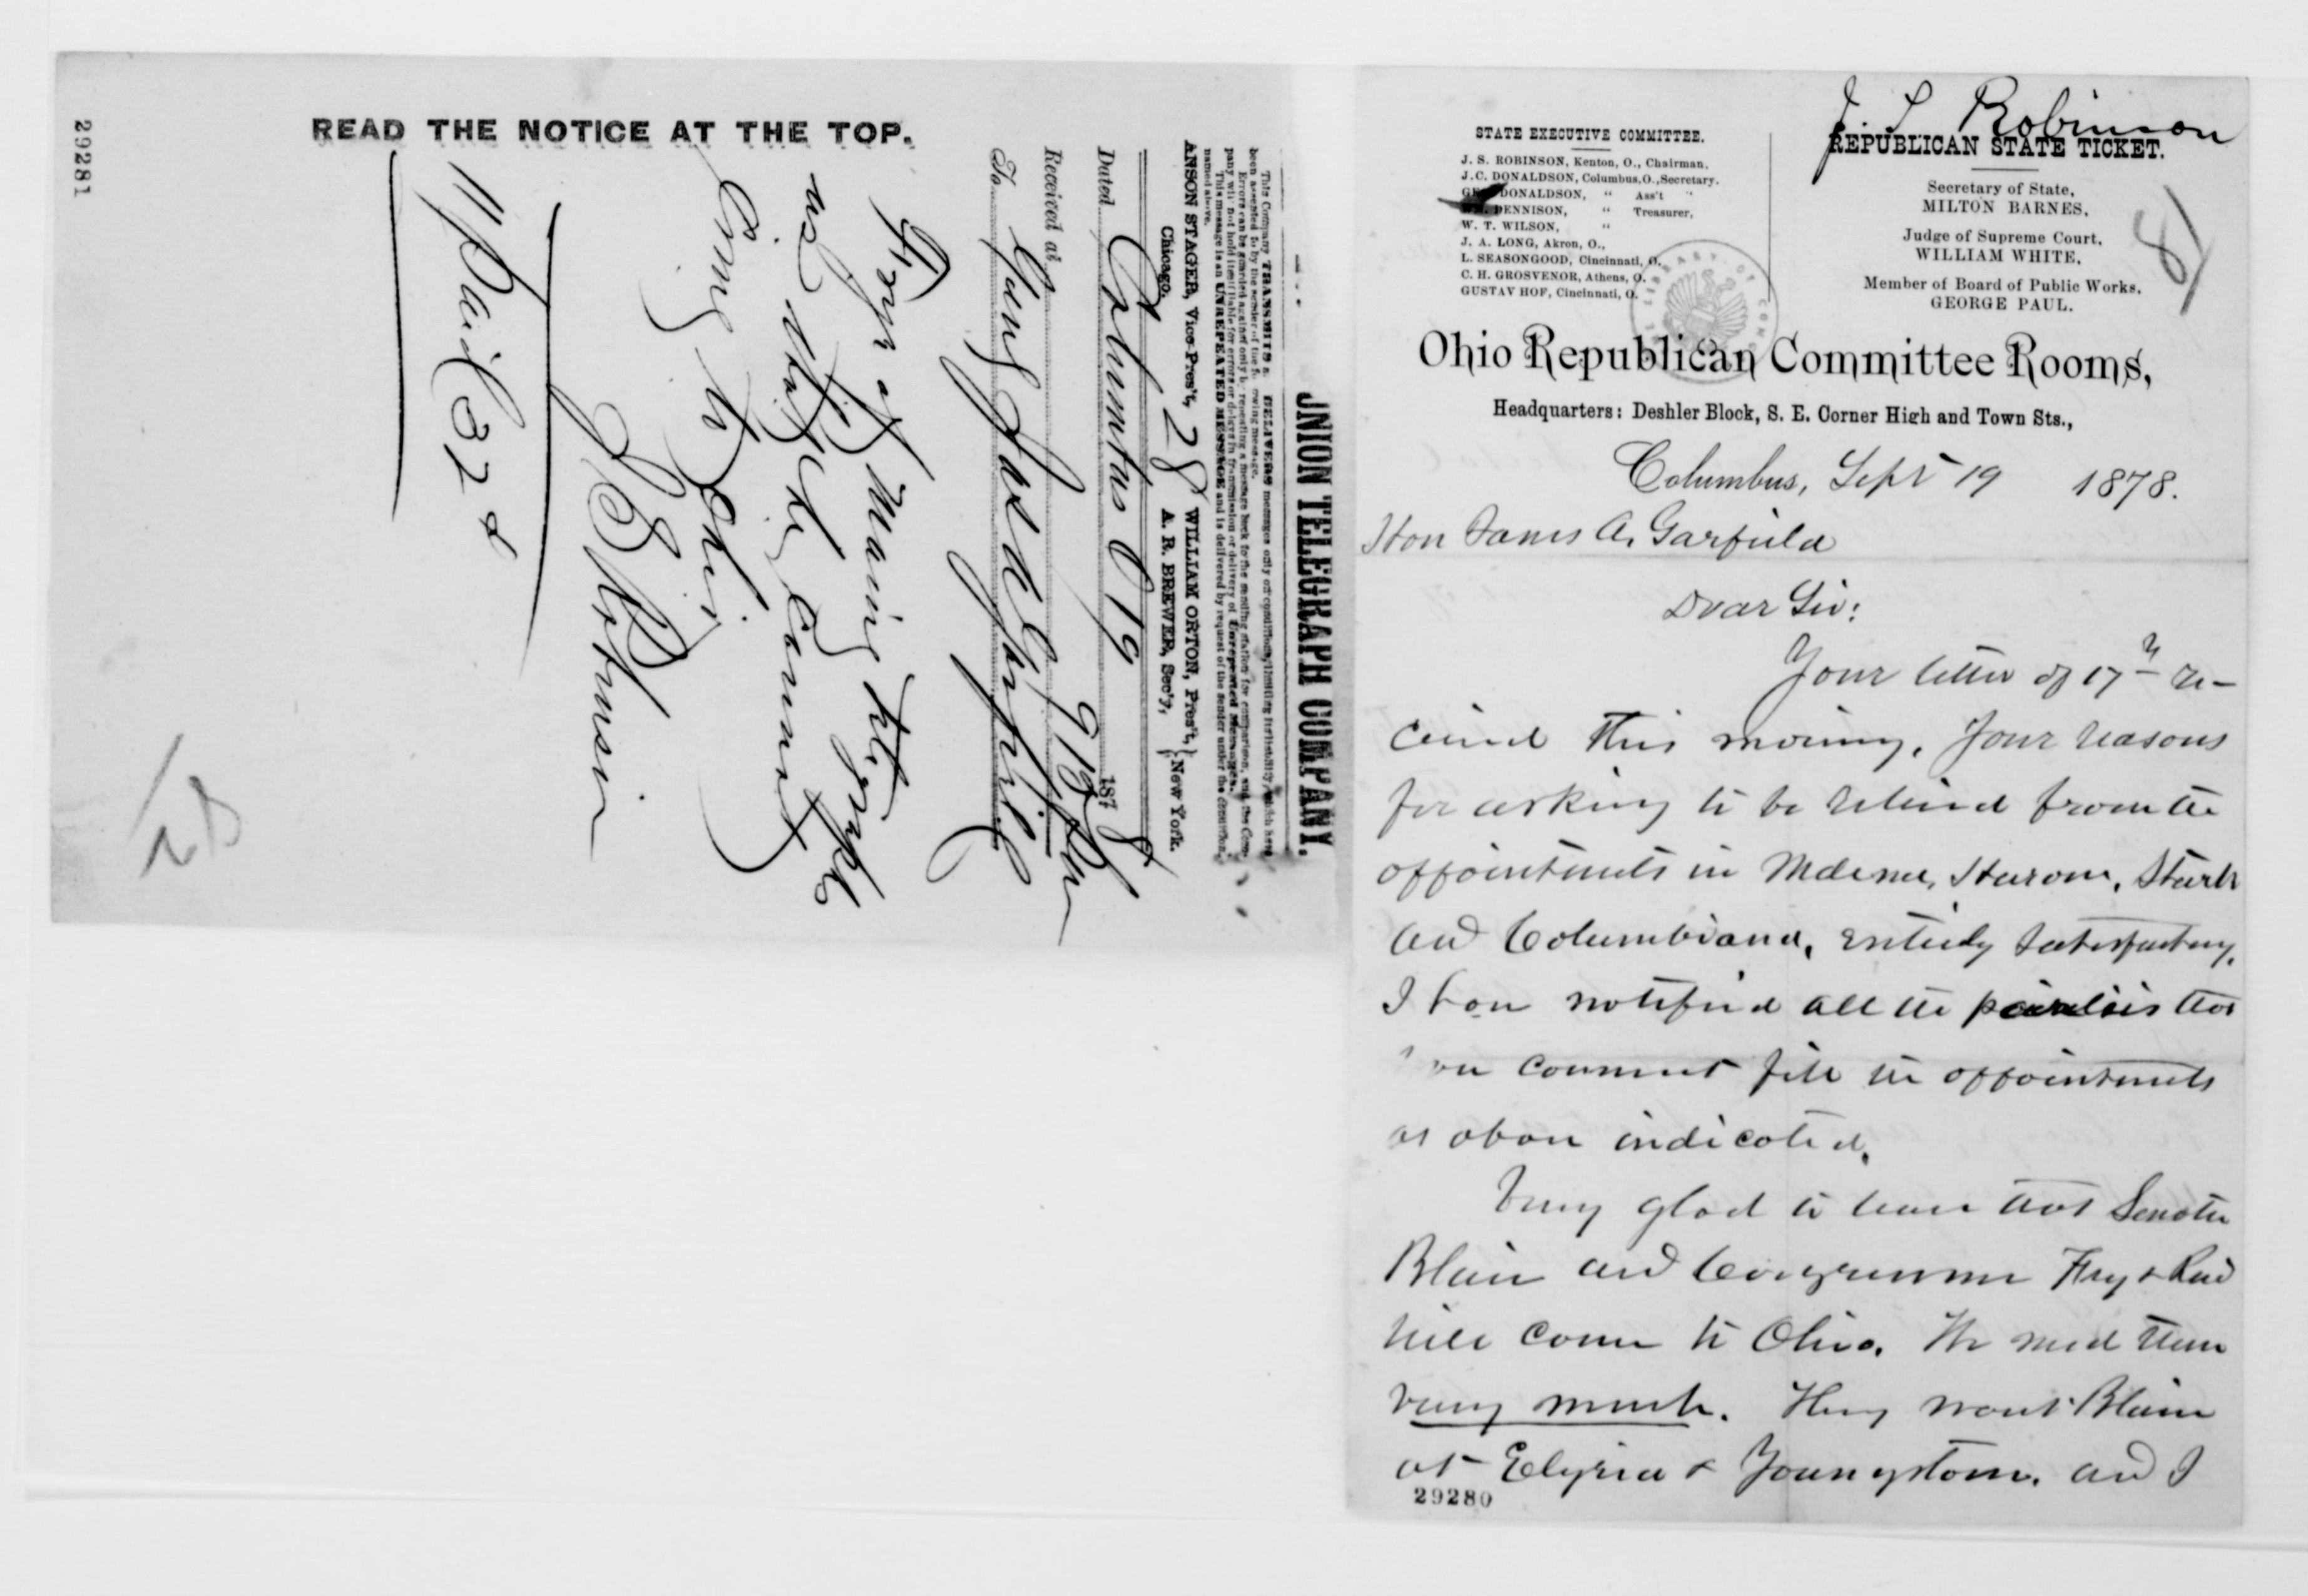 29281
READ THE NOTICE AT THE TOP.
UNION TELEGRAPH COMPANY.
This Company TRANSMITS and DELIVERS messages only on conditions, limiting its liability, which have
been assented to by the sender of the following message.
Errors can be guarded against only by repeating a message back to the sending station for comparison, and the Com-
pany will not hold itself liable for errors or delays in transmission or delivery of Unrepeated Messages.
This message is an UNREPEATED MESSAGE and is delivered by request of the sender under the conditions
named above.
ANSON STAGER, Vice-Pres't, WILLIAM ORTON, Pres't, } New York.
Chicago. A. R. BREWER, Sec'y,
28
Dated Columbus O 19 1878
Received at 918 Pm
To Genl Jas A Garfield
Frye of Maine telegraphs
us that he cannot
Come to Ohio
J S Robinson
11 Paid 32
J. S. Robinson
STATE EXECUTIVE COMMITTEE.
J. S. ROBINSON, Kenton, O., Chairman.
J. C. DONALDSON, Columbus, O., Secretary.
DONALDSON, " Ass't "
DENNISON, " Treasurer,
W. T. WILSON, "
J. A. LONG, Akron, O.,
L. SEASONGOOD, Cincinnati, O.
C. H. GROSVENOR, Athens, O.
GUSTAV HOF, Cincinnati, O.
REPUBLICAN STATE TICKET.
Secretary of State,
MILTON BARNES,
Judge of Supreme Court,
WILLIAM WHITE,
Member of Board of Public Works,
GEORGE PAUL.
Ohio Republican Committee Rooms,
Headquarters: Deshler Block, S. E. Corner High and Town Sts.,
Columbus, Sept 19 1878.
Hon James A. Garfield
Dear Sir:
Your letter of 17th re-
ceived this morning. Your reasons
for asking to be relieved from the
appointments in Medina, Huron, Stark
and Columbiana, entirely satisfactory.
I have notified all the parties that
you cannot fill the appointments
as above indicated.
Very glad to learn that Senator
Blaine and Congressmen Frye & Reed
will come to Ohio. We need them
very much. They want Blaine
at Elyria & Youngstown. and I
29280